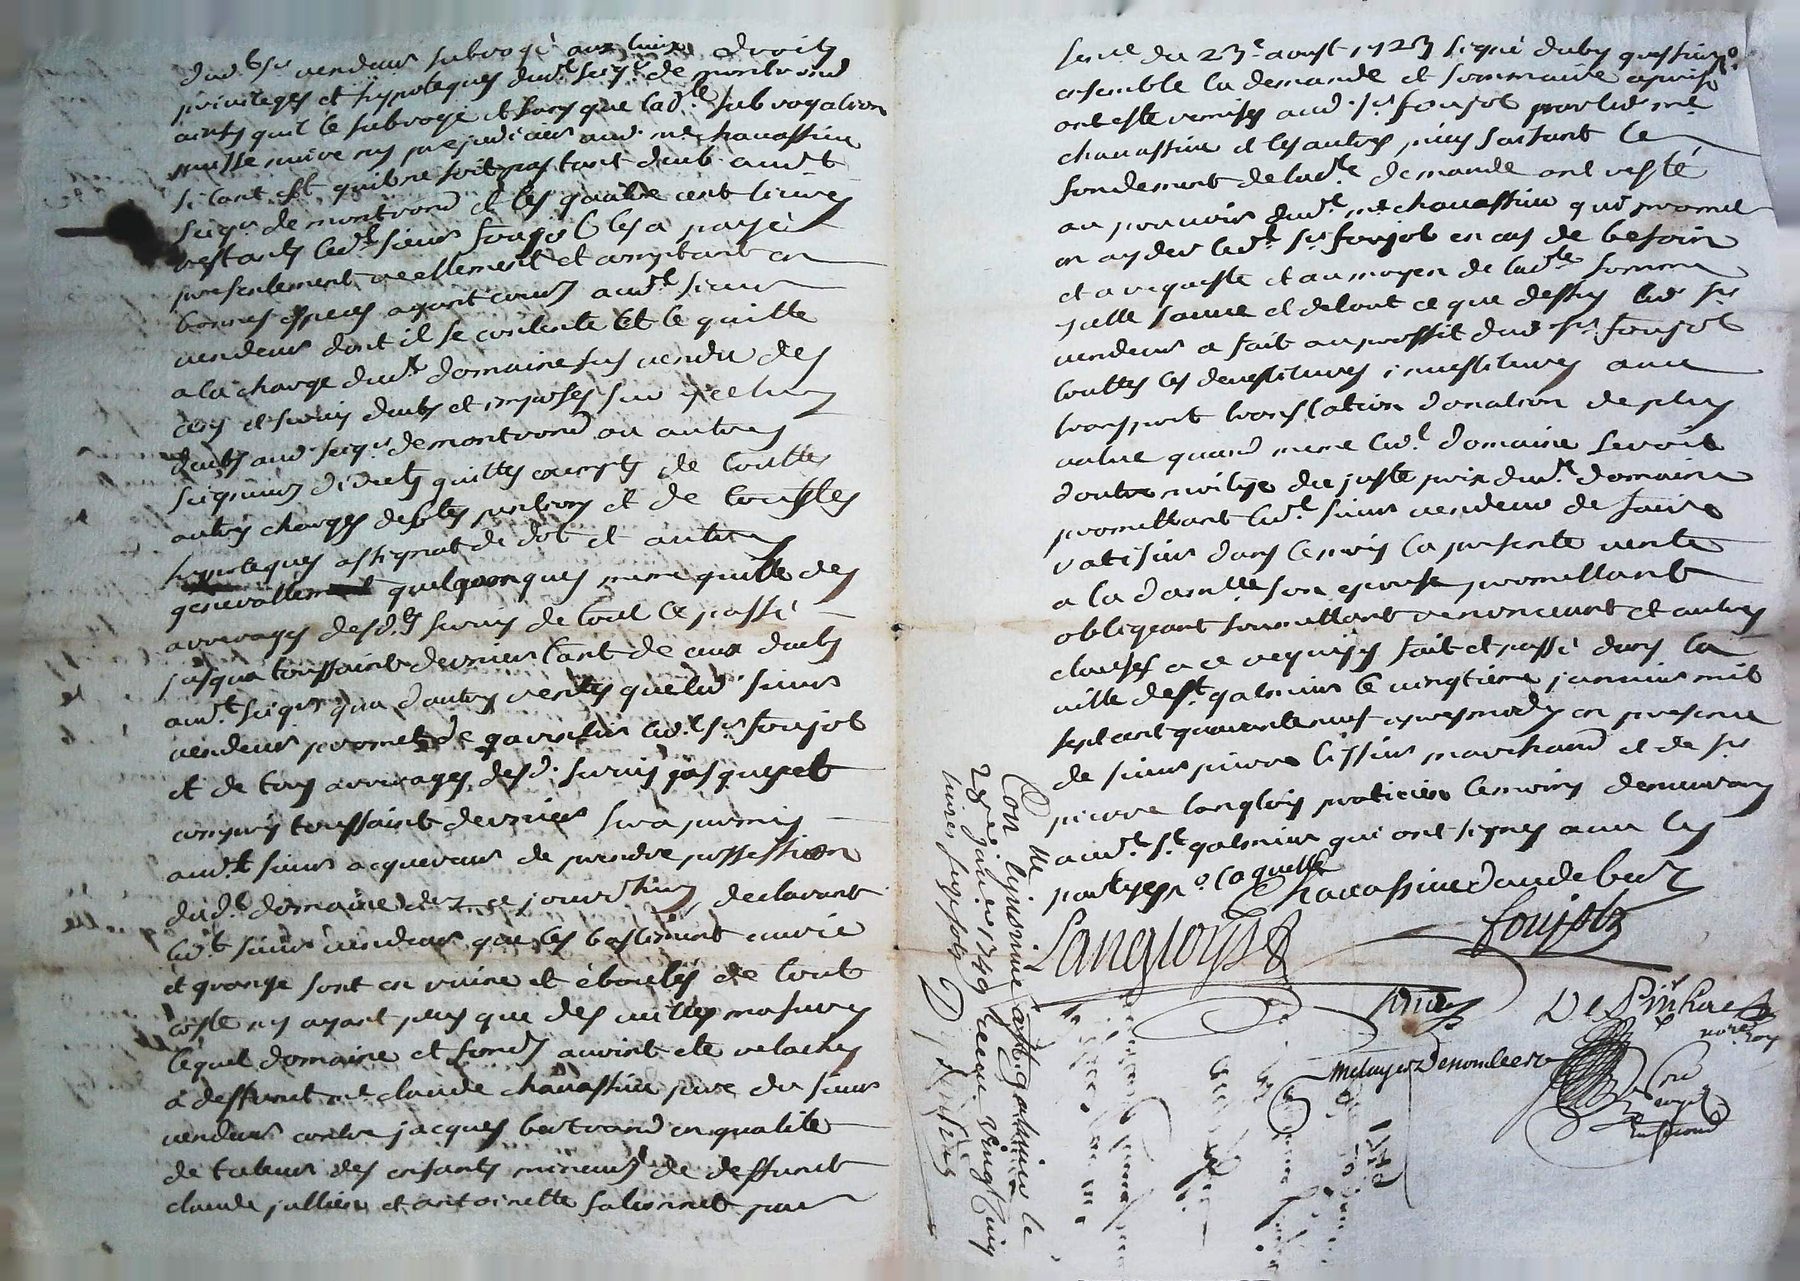 dud.t s.r vendeur subrogé aux lieux droits
privileges et hypoteques dud.t seig.r de montrond
ainsy quil le subroge et sans que lad.te subrogation
puisse nuire ny prejudicier aud. m.e chavassieu
si tant est quil ne soit pas tant deub aud.t
seig.r de montrond et les quatre cent livres
restants led.t sieur foujols les a payé
presentement reellement et comptant en
bonnes especes ayant cours aud.t sieur
vendeur dont il se contente et le quitte
a la charge dud.t domaine sus vendu des
cens et servis deubs et imposés sur icelluy
deubs aud. seig.r de montrond ou autres
seigneurs directs quittes exempts de touttes
autres charges debtes pentions et de touttes
hypoteques assignat de dot et autres
generallement quelquonques meme quitte des
arrerages desd.ts servis de tout le passé
jusqua toussaint dernier tant de ceux deubs
aud.t seig.r qua dautres rentes que led. sieur
vendeur promet de garentir led.t s.r foujols
et de tous arrerages desd. servis jusques et
compris toussaint dernier sera permis
aud.t sieur acquereur de prendre possession
dud.t domaine dez ce jourdhuy declarant
led.t sieur vendeur que les bastiment curie
et grange sont en ruine et éboulés de tout
costé ny ayant plus que des vieilles masures
lequel domaine et fonds avoient eté relachés
a deffunt m.e claude chavassieu pere du sieur
vendeur contre jacques bertrand en qualité
de tuteur des enfants mineurs de deffunt
claude jullien et antoinette salonnet par
sent.ce du 23.e aoust 1723 signé dubuy
ensemble la demande et sommaire aprise
ont esté remises aud. s.r foujols par led. m.e
chavassieu et les autres pieces faisant le
fondement de lad.te demande ont resté
au pouvoir dud.t m.e chavassieu qui promet
en ayder led.t s.r foujols en cas de besoin
et a requeste et au moyen de lad.te somme
vendeur a fait au proffit dud. s.r foujols
touttes les devestitures investitures avec
transport translation donation de plus
value quand meme led.t domaine seroit
doutre moitye du juste prix dud.t domaine
promettant led.t sieur vendeur de faire
ratifier dans le mois la presente vente
a la dam.lle son epouse promettant
obligeant soumettant renonceant et autres
clauses a ce requises fait et passé dans la
ville de s.t galmier le vingtieme janvier mil
sept cent quarante neuf apres midy en presence
de sieur pierre tissier marchand et de s.r
pierre langlois praticien temoins demeurans
aud.t s.t galmier qui ont signés avec les
partyes
Chavassieu daudebert
Langlois
foujols
tissier
Con.lle
a s.t galmier le
28 janvier 1749 receu vingt cinq
livres